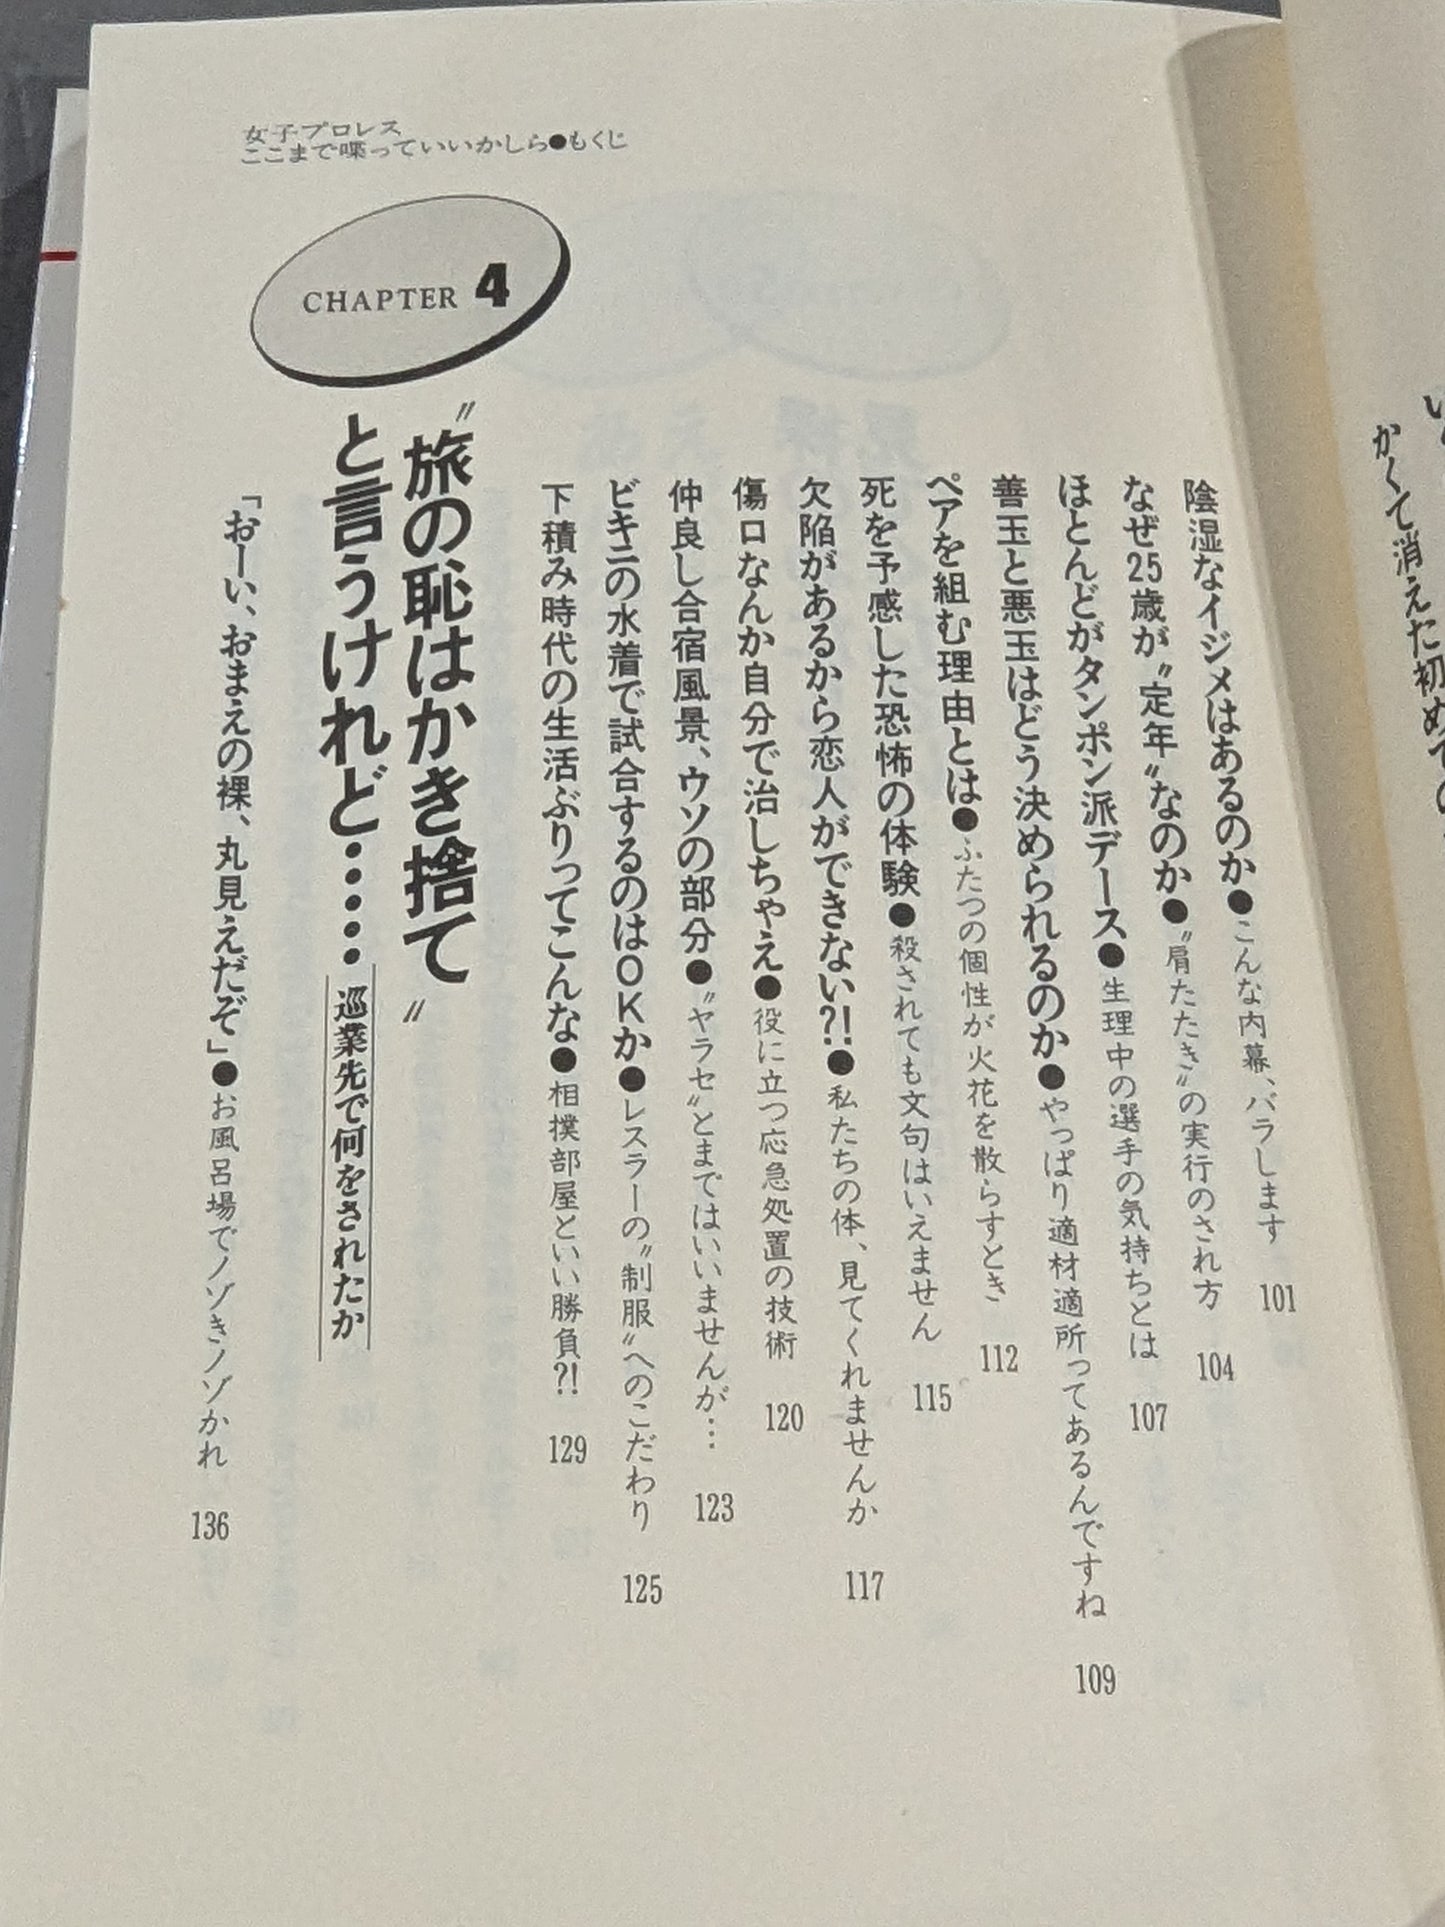 女子プロレス
ここまで喋っていいかしら●もくじ
陰湿なイジメはあるのか●こんな内幕、バラします 101
なぜ25歳が〝定年〟なのか●〝肩たたき〟の実行のされ方 104
ほとんどがタンポン派デース●生理中の選手の気持ちとは 107
善玉と悪玉はどう決められるのか●やっぱり適材適所ってあるんですね 109
ペアを組む理由とは●ふたつの個性が火花を散らすとき 112
死を予感した恐怖の体験●殺されても文句はいえません 115
欠陥があるから恋人ができない?!●私たちの体、見てくれませんか 117
傷口なんか自分で治しちゃえ●役に立つ応急処置の技術 120
仲良し合宿風景、ウソの部分●〝ヤラセ〟とまではいいませんが… 123
ビキニの水着で試合するのはOKか●レスラーの〝制服〟へのこだわり 125
下積み時代の生活ぶりってこんな●相撲部屋といい勝負?! 129
CHAPTER 4
〝旅の恥はかき捨て〟
と言うけれど……巡業先で何をされたか
「おーい、おまえの裸、丸見えだぞ」●お風呂場でノゾきノゾかれ 136
かくて消えた初めての